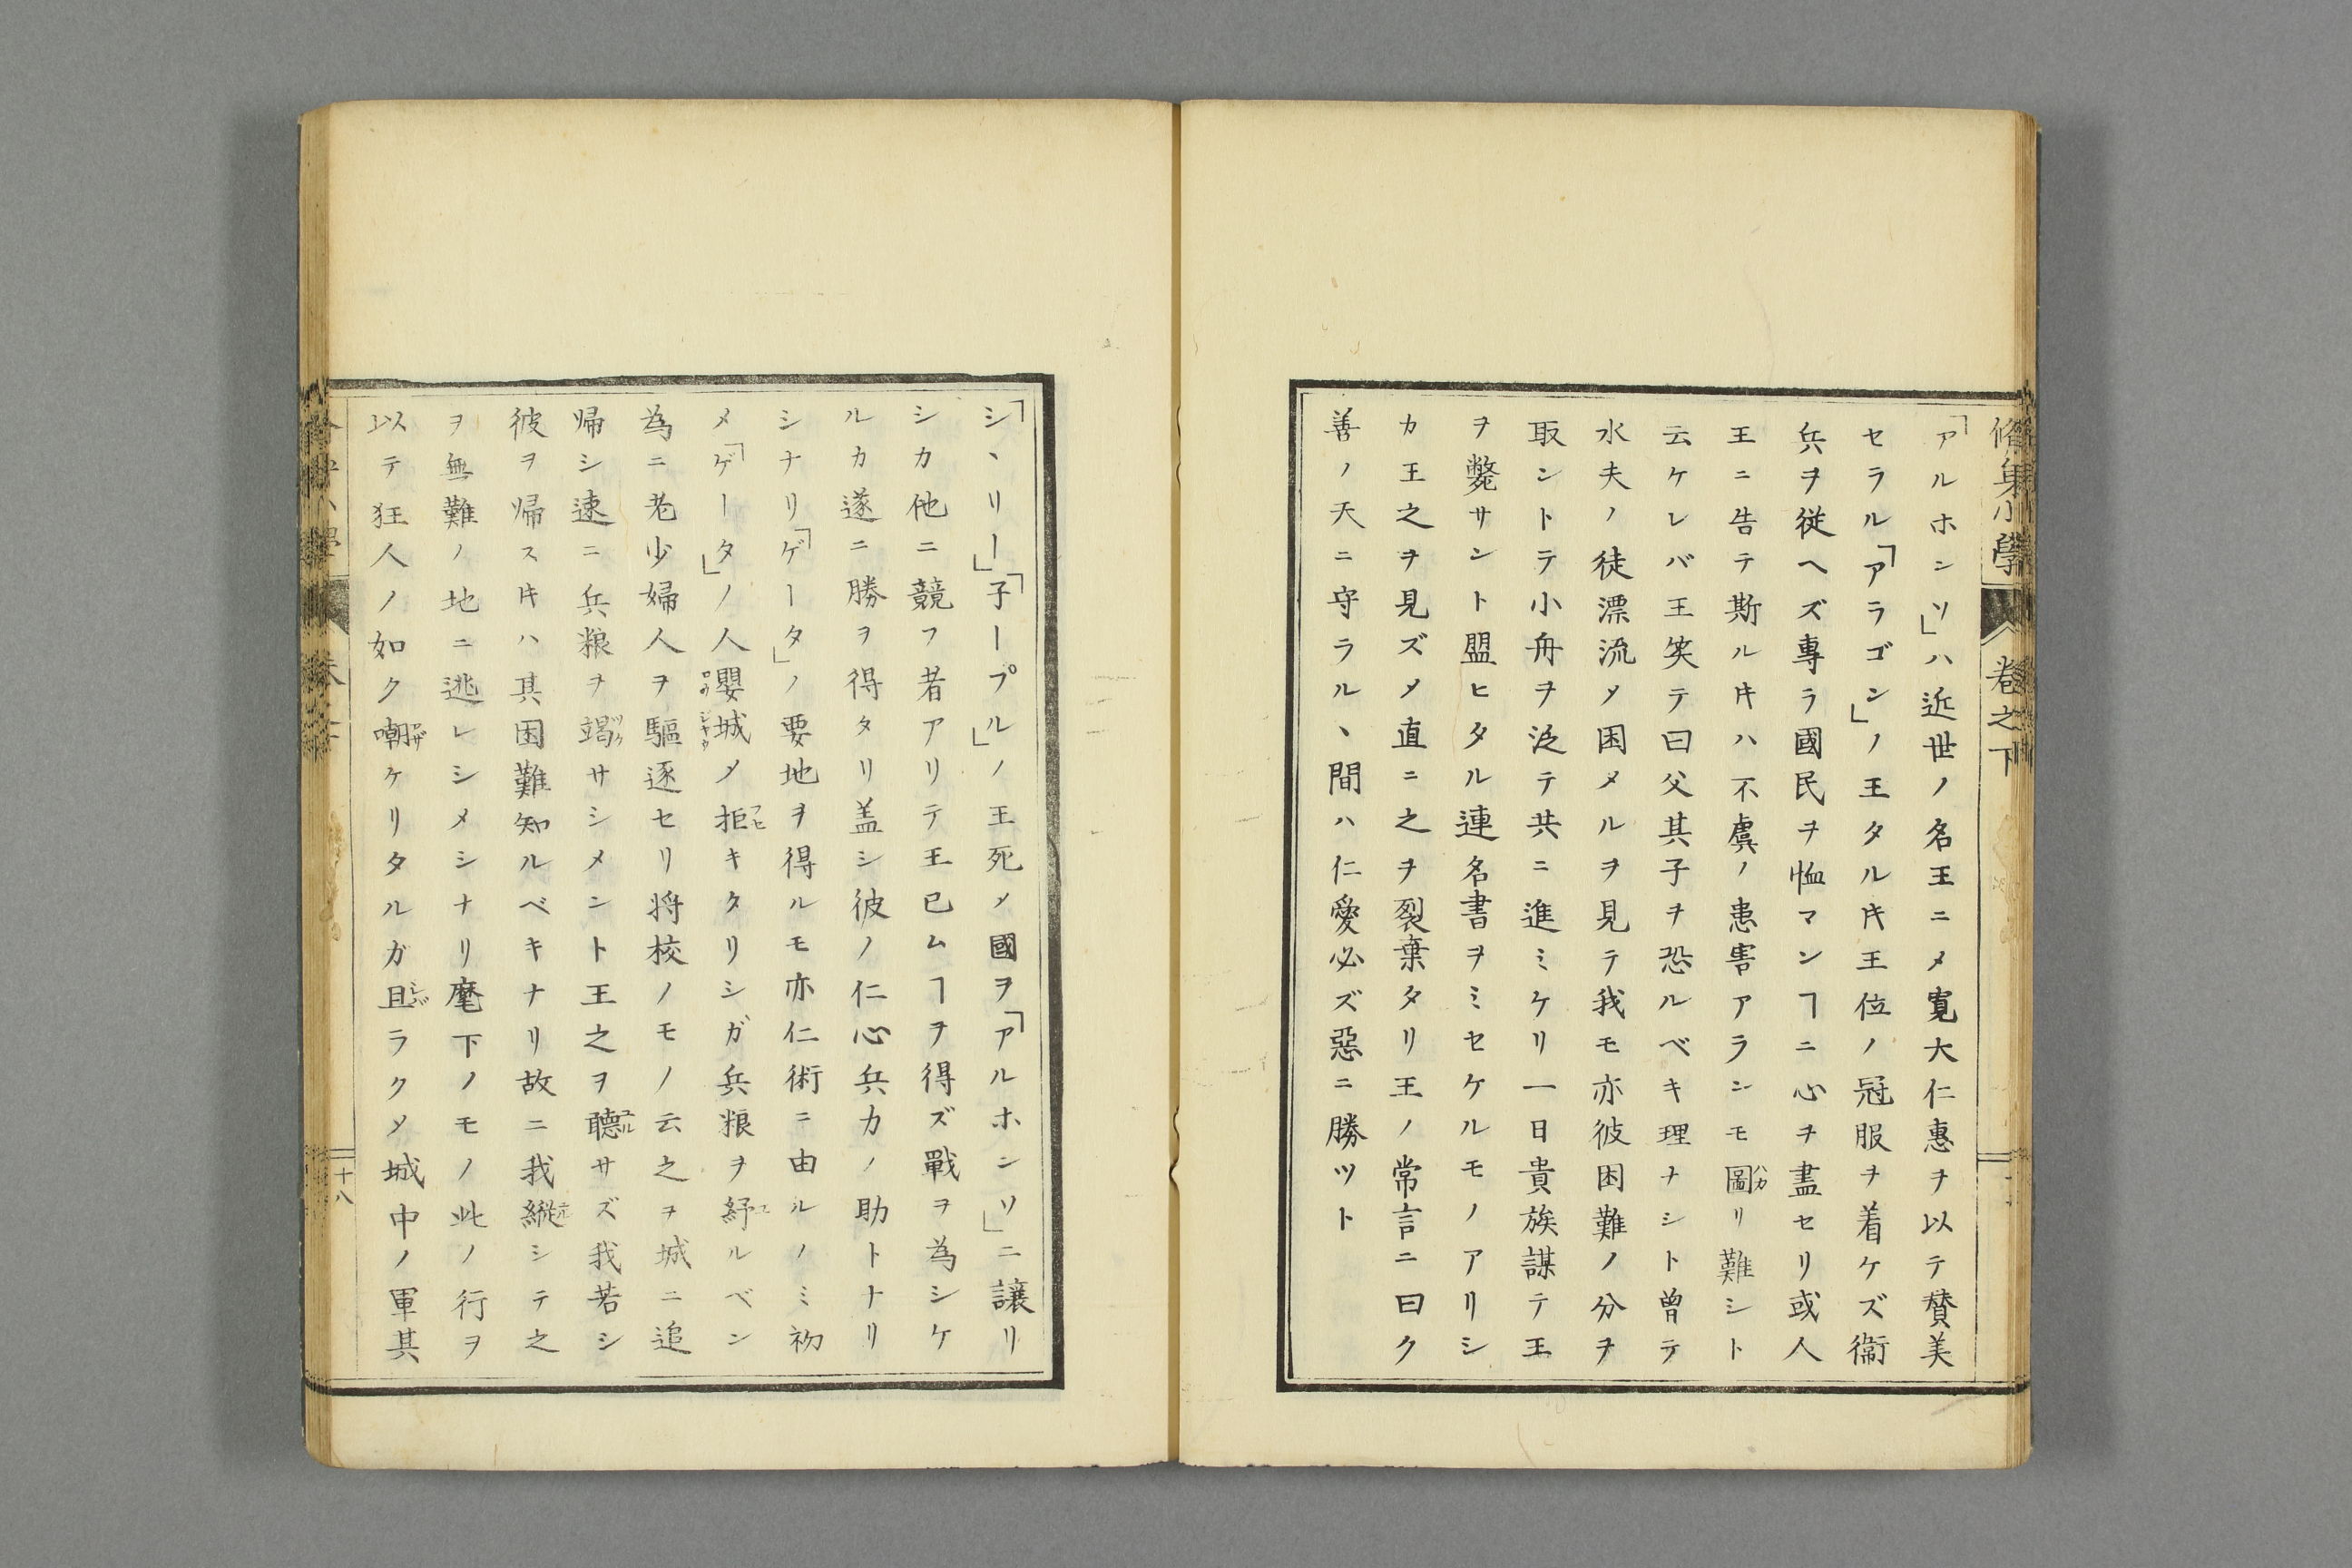 脩身小學
卷之下
「アルホンソ」ハ近世ノ名王ニメ寛大仁惠ヲ以テ賛美
セラル「アラゴン」ノ王タルトキ王位ノ冠服ヲ着ケズ衞
兵ヲ従ヘズ專ラ國民ヲ恤マンヿニ心ヲ盡セリ或人
王ニ告テ斯ルトキハ不虞ノ患害アランモ圖リ難シト
云ケレバ王笑テ曰父其子ヲ恐ルベキ理ナシト曽テ
水夫ノ徒漂流メ困メルヲ見テ我モ亦彼困難ノ分ヲ
取ントテ小舟ヲ泛テ共ニ進ミケリ一日貴族謀テ王
ヲ斃サント盟ヒタル連名書ヲミセケルモノアリシ
カ王之ヲ見ズメ直ニ之ヲ裂棄タリ王ノ常言ニ曰ク
善ノ天ニ守ラルヽ間ハ仁愛必ズ惡ニ勝ツト
「シヽリー」「子ープル」ノ王死メ國ヲ「アルホンソ」ニ譲リ
シカ他ニ競フ者アリテ王已ムヿヲ得ズ戰ヲ為シケ
ルカ遂ニ勝ヲ得タリ盖シ彼ノ仁心兵力ノ助トナリ
シナリ「ゲータ」ノ要地ヲ得ルモ亦仁術ニ由ルノミ初
メ「ゲータ」ノ人嬰城メ拒キタリシガ兵粮ヲ紓ルベン
為ニ老少婦人ヲ驅逐セリ将校ノモノ云之ヲ城ニ追
帰シ速ニ兵粮ヲ竭サシメント王之ヲ聴サズ我若シ
彼ヲ帰ストキハ其困難知ルベキナリ故ニ我縦シテ之
ヲ無難ノ地ニ逃レシメシナリ麾下ノモノ此ノ行ヲ
以テ狂人ノ如ク嘲ケリタルガ且ラクメ城中ノ軍其
十八